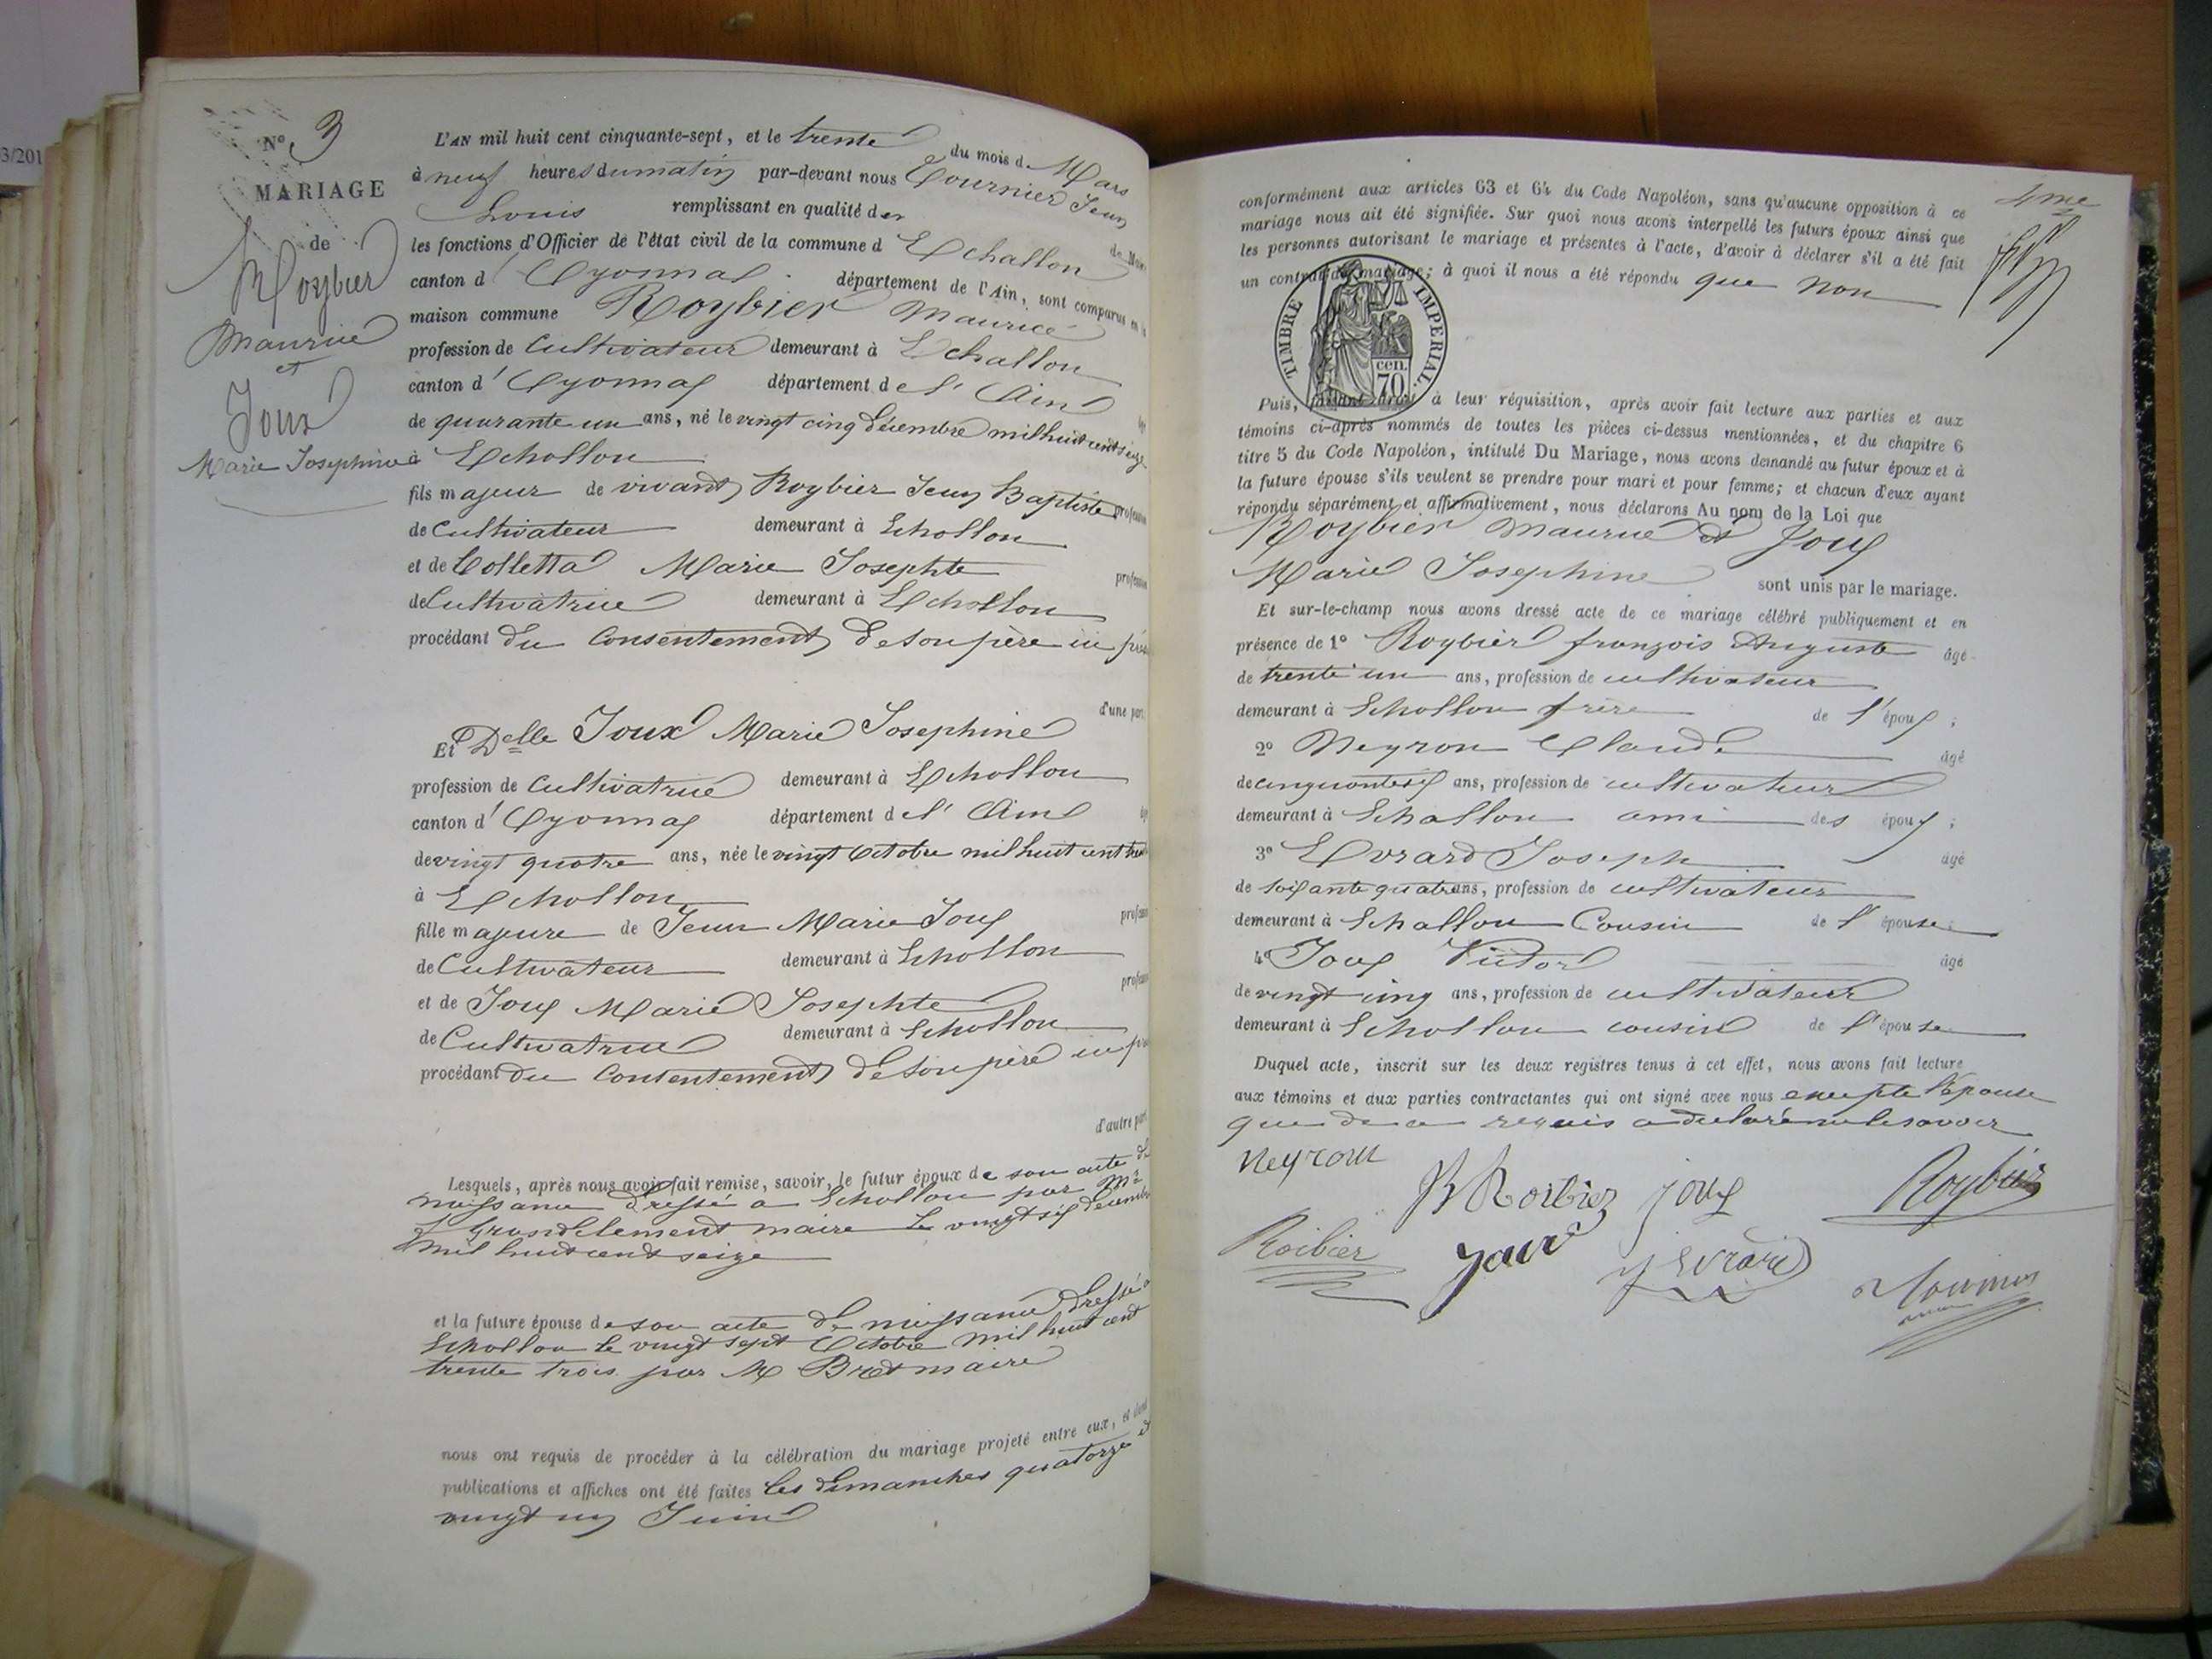 3/201
N° 3
MARIAGE
de
Roybier
Maurice
et
Joux
Marie Josephine
L'AN mil huit cent cinquante-sept, et le trente du mois de Mars
à neuf heures du matin par-devant nous Tournier Jean
Louis remplissant en qualité de Maire
les fonctions d'Officier de l'état civil de la commune d Echallon
canton d'Oyonnax département de l'Ain, sont comparus en la
maison commune Roybier Maurice
profession de Cultivateur demeurant à Echallon
canton d'Oyonnax département de l'Ain
de quarante un ans, né le vingt cinq Décembre mil huit cent seize
à Echallon
fils majeur de vivant Roybier Jean Baptiste profession
de Cultivateur demeurant à Echallon
et de Colletta Marie Josephte profession
de Cultivatrice demeurant à Echallon
procédant du Consentement de son père ici
d'une part
Et Delle Joux Marie Josephine
profession de Cultivatrice demeurant à Echallon
canton d'Oyonnax département de l'Ain
de vingt quatre ans, née le vingt Octobre mil huit cent
à Echallon
fille majeure de Jean Marie Joux profession
de Cultivateur demeurant à Echallon
et de Joux Marie Josephte profession
de Cultivatrice demeurant à Echallon
procédant du Consentement de son père ici
d'autre part
Lesquels, après nous avoir fait remise, savoir, le futur époux de son acte de
naissance dressé a Echallon par Mr
Grandclement maire le vingt six décembre
mil huit cent seize
et la future épouse de son acte de naissance dressé a
Echallon le vingt sept Octobre mil huit cent
trente trois par M Bret maire
nous ont requis de procéder à la célébration du mariage projeté entre eux, et dont
publications et affiches ont été faites les dimanches quatorze et
vingt un Juin
4me
conformément aux articles 63 et 64 du Code Napoléon, sans qu'aucune opposition à ce
mariage nous ait été signifiée. Sur quoi nous avons interpellé les futurs époux ainsi que
les personnes autorisant le mariage et présentes à l'acte, d'avoir à déclarer s'il a été fait
un contrat de mariage; à quoi il nous a été répondu que non
TIMBRE IMPERIAL.
70 cen.
Puis, faisant droit à leur réquisition, après avoir fait lecture aux parties et aux
témoins ci-après nommés de toutes les pièces ci-dessus mentionnées, et du chapitre 6
titre 5 du Code Napoléon, intitulé Du Mariage, nous avons demandé au futur époux et à
la future épouse s'ils veulent se prendre pour mari et pour femme; et chacun d'eux ayant
répondu séparément et affirmativement, nous déclarons Au nom de la Loi que
Roybier Maurice et Joux
Marie Josephine sont unis par le mariage.
Et sur-le-champ nous avons dressé acte de ce mariage célébré publiquement et en
présence de 1° Roybier françois Auguste âgé
de trente un ans, profession de cultivateur
demeurant à Echallon frère de l'époux;
2° Neyron Claude âgé
de cinquante six ans, profession de cultivateur
demeurant à Echallon ami des époux;
3° Evrard Joseph âgé
de soixante quatre ans, profession de cultivateur
demeurant à Echallon Cousin de l'épouse
4° Joux Victor âgé
de vingt cinq ans, profession de cultivateur
demeurant à Echallon cousin de l'épouse
Duquel acte, inscrit sur les deux registres tenus à cet effet, nous avons fait lecture
aux témoins et aux parties contractantes qui ont signé avec nous excepté l'épouse
que de ce requis a déclaré ne le savoir
neyron Roibier joux Roybier
Roibier joux j evrard Tournier